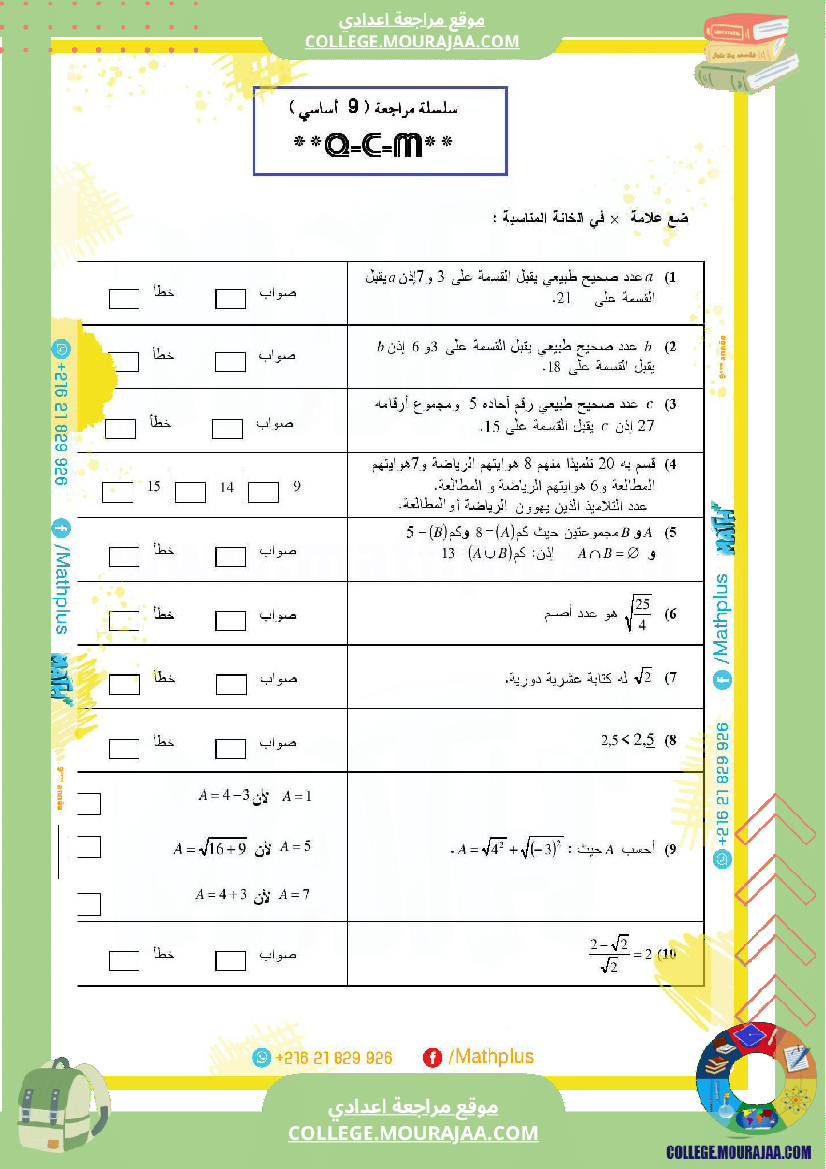 موقع مراجعة اعدادي
COLLEGE.MOURAJAA.COM
سلسلة مراجعة ( 9 أساسي )
**Q=C=M**
ضع علامة × في الخانة المناسبة :
1) a عدد صحيح طبيعي يقبل القسمة على 3 و7إذن a يقبل
القسمة على 21.
صواب خطأ
2) b عدد صحيح طبيعي يقبل القسمة على 3و 6 إذن b
يقبل القسمة على 18.
صواب خطأ
3) c عدد صحيح طبيعي رقم آحاده 5 ومجموع أرقامه
27 إذن c يقبل القسمة على 15.
صواب خطأ
4) قسم به 20 تلميذا منهم 8 هوايتهم الرياضة و7هوايتهم
المطالعة و6 هوايتهم الرياضة و المطالعة.
عدد التلاميذ الذين يهوون الرياضة أو المطالعة.
9 14 15
5) A و B مجموعتين حيث كم(A)=8 وكم(B)=5
و A∩B=∅ إذن: كم(A∪B) 13
صواب خطأ
6) √(25/4) هو عدد أصم
صواب خطأ
7) √2 له كتابة عشرية دورية.
صواب خطأ
8) 2,5 < 2,5
صواب خطأ
9) أحسب A حيث : A=√4²+√(−3)² .
A=1 لأن A=4−3
A=5 لأن A=√16+9
A=7 لأن A=4+3
10) (2−√2)/√2 = 2
صواب خطأ
+216 21 829 926
/Mathplus
MATH+
9ème année
9ème année
MATH+
/Mathplus
+216 21 829 926
+216 21 829 926 /Mathplus
موقع مراجعة اعدادي
COLLEGE.MOURAJAA.COM
COLLEGE.MOURAJAA.COM